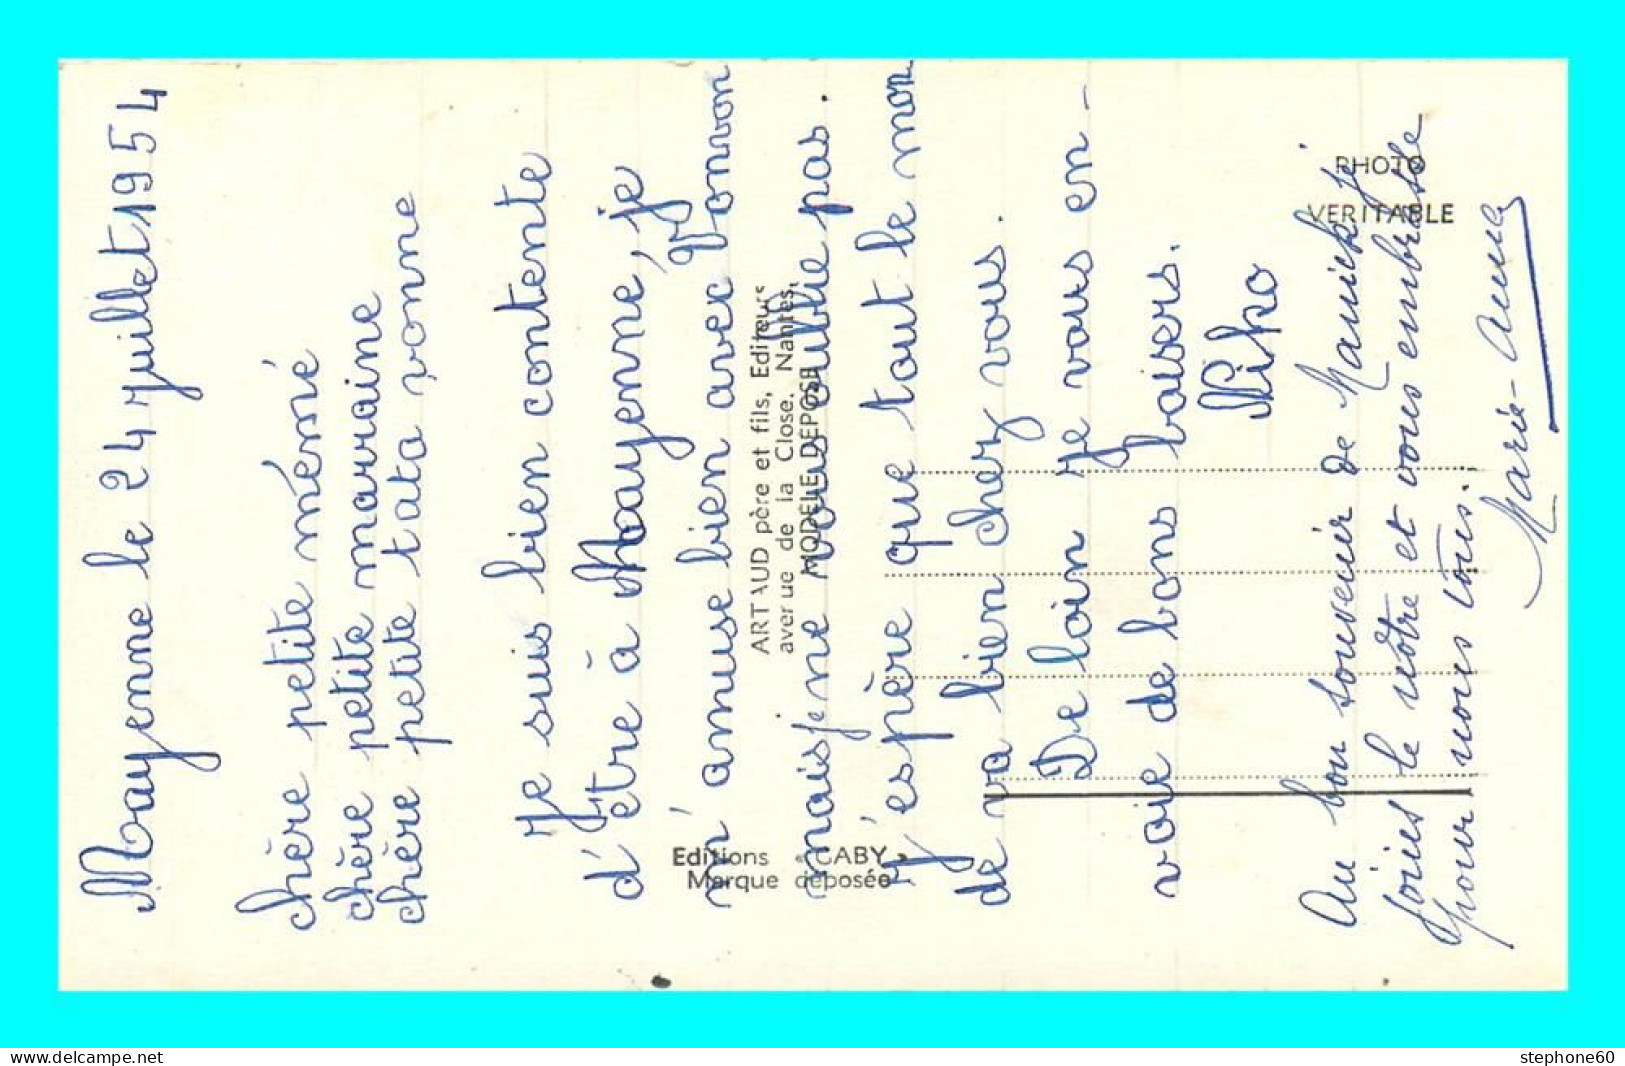 Mayenne le 24 juillet 1954
chère petite mémé
chère petite marraine
chère petite tata vonne
Je suis bien contente
d'être à Mayenne, je
m'amuse bien avec Yonvon
mais je ne vous oublie pas.
J'espère que tout le mon
de va bien chez vous.
De loin je vous en-
voie de bons baisers.
Niko
Au bon souvenir de j'
joins le nôtre et vous embrasse
pour nous tous.
Marie-Anne
Editions « GABY »
Marque déposée
ARTAUD père et fils, Editeurs
avenue de la Close. Nantes.
MODELE DEPOSE
PHOTO
VERITABLE
www.delcampe.net
stephone60